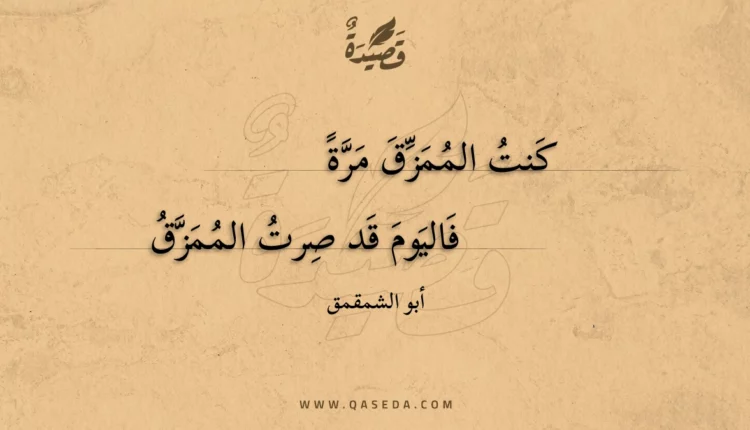 قَصِيدَةٌ
كَنتُ المُمَزِّقَ مَرَّةً
فَاليَومَ قَد صِرتُ المُمَزَّقُ
أبو الشمقمق
WWW.QASEDA.COM